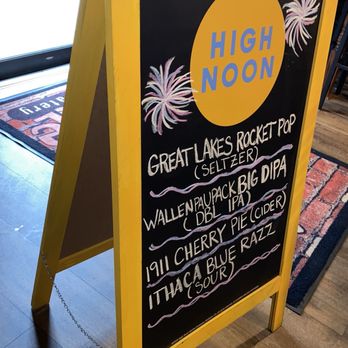 HIGH
NOON
GREAT LAKES ROCKET POP
(SELTZER)
WALLENPAUPACK BIG DIPA
(DBL IPA)
1911 CHERRY PIE (CIDER)
ITHACA BLUE RAZZ
(SOUR)